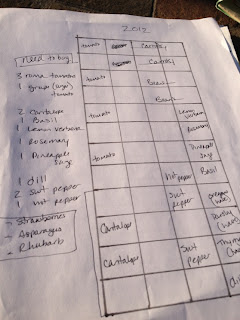 2012
Need to buy
3 roma tomatoes
1 grape
tomato
2 cantalope
Basil
1 Lemon verbena
1 Rosemary
1 Pineapple
Sage
1 dill
2 Swt pepper
1 Hot pepper
- Strawberries
- Asparagus
- Rhubarb
tomato Carrots
tomato Carrots
tomato Bean
Bean
Lemon
verbena
Rosemary
tomato Pineapple
Sage
Hot pepper Basil
Swt
pepper oregano
Parsley
Cantalope
Cantalope Swt
Pepper Thyme
dill